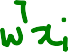 wᵀxᵢ